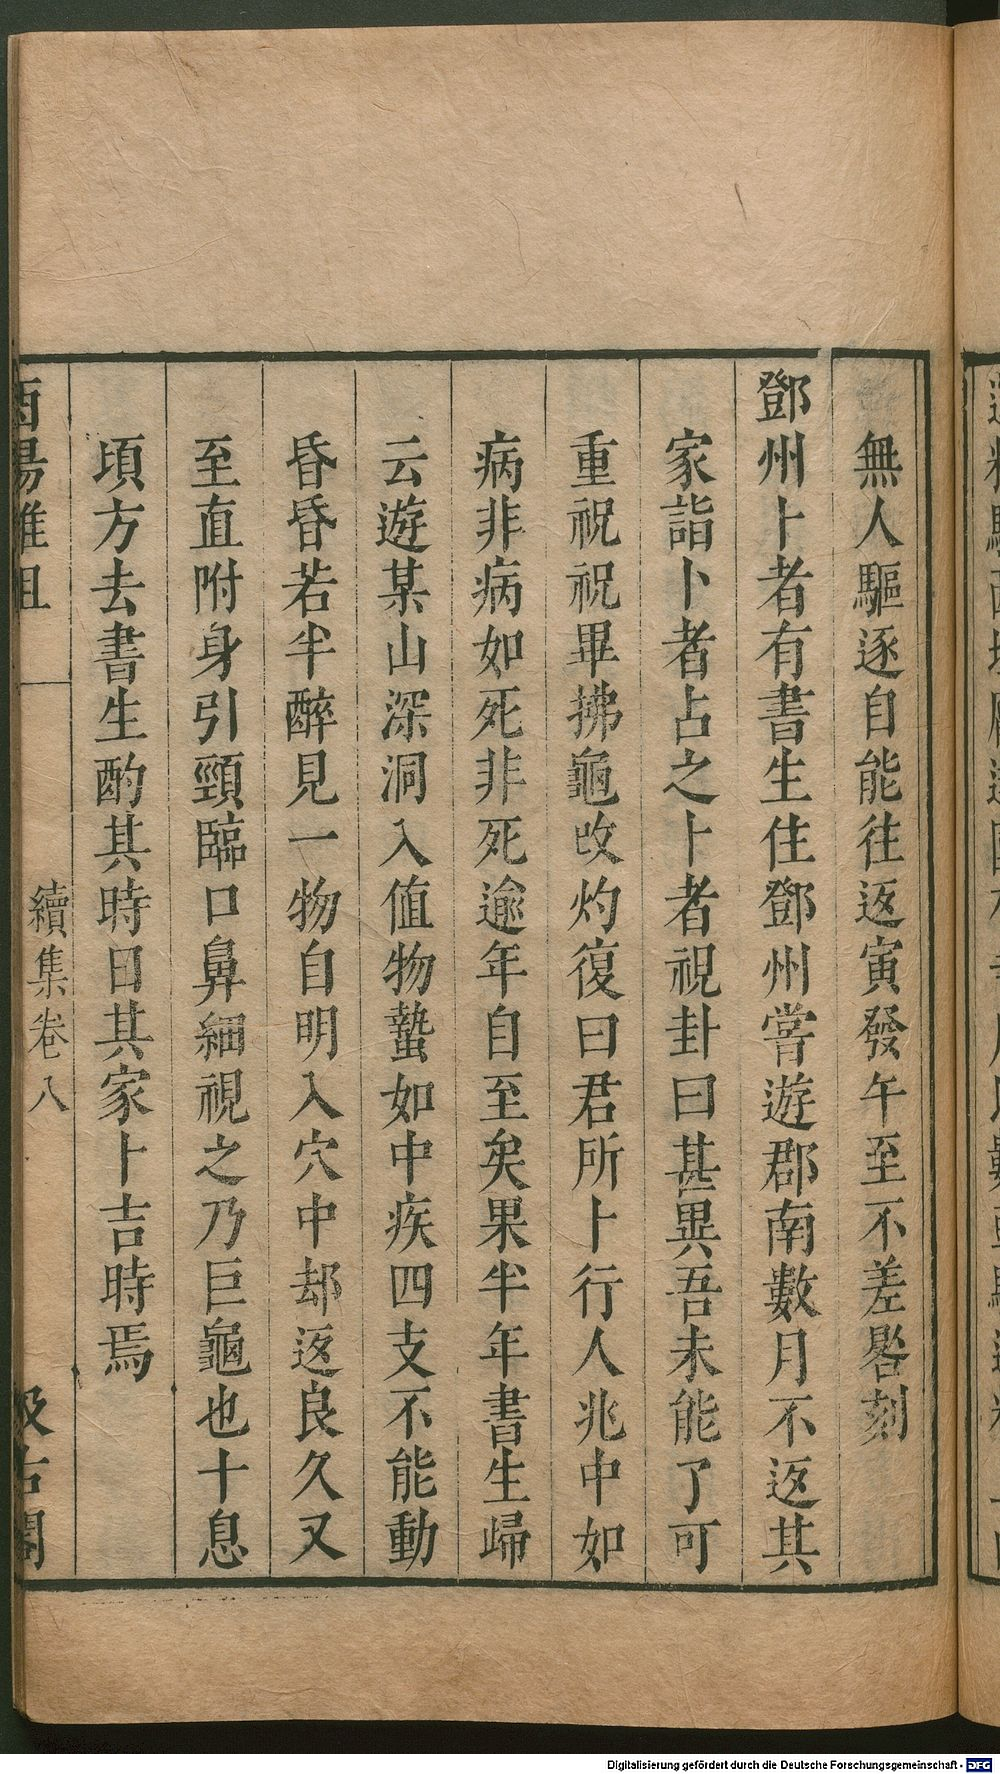 無人驅逐自能往返寅發午至不差晷刻
鄧州卜者有書生住鄧州嘗遊郡南數月不返其
家詣卜者占之卜者視卦曰甚異吾未能了可
重祝祝畢拂龜改灼復曰君所卜行人兆中如
病非病如死非死逾年自至矣果半年書生歸
云遊某山深洞入值物蟄如中疾四支不能動
昏昏若半醉見一物自明入穴中却返良久又
至直附身引頸臨口鼻細視之乃巨龜也十息
頃方去書生酌其時日其家卜吉時焉
酉陽雜俎
續集卷八
汲古閣
Digitalisierung gefördert durch die Deutsche Forschungsgemeinschaft - DFG